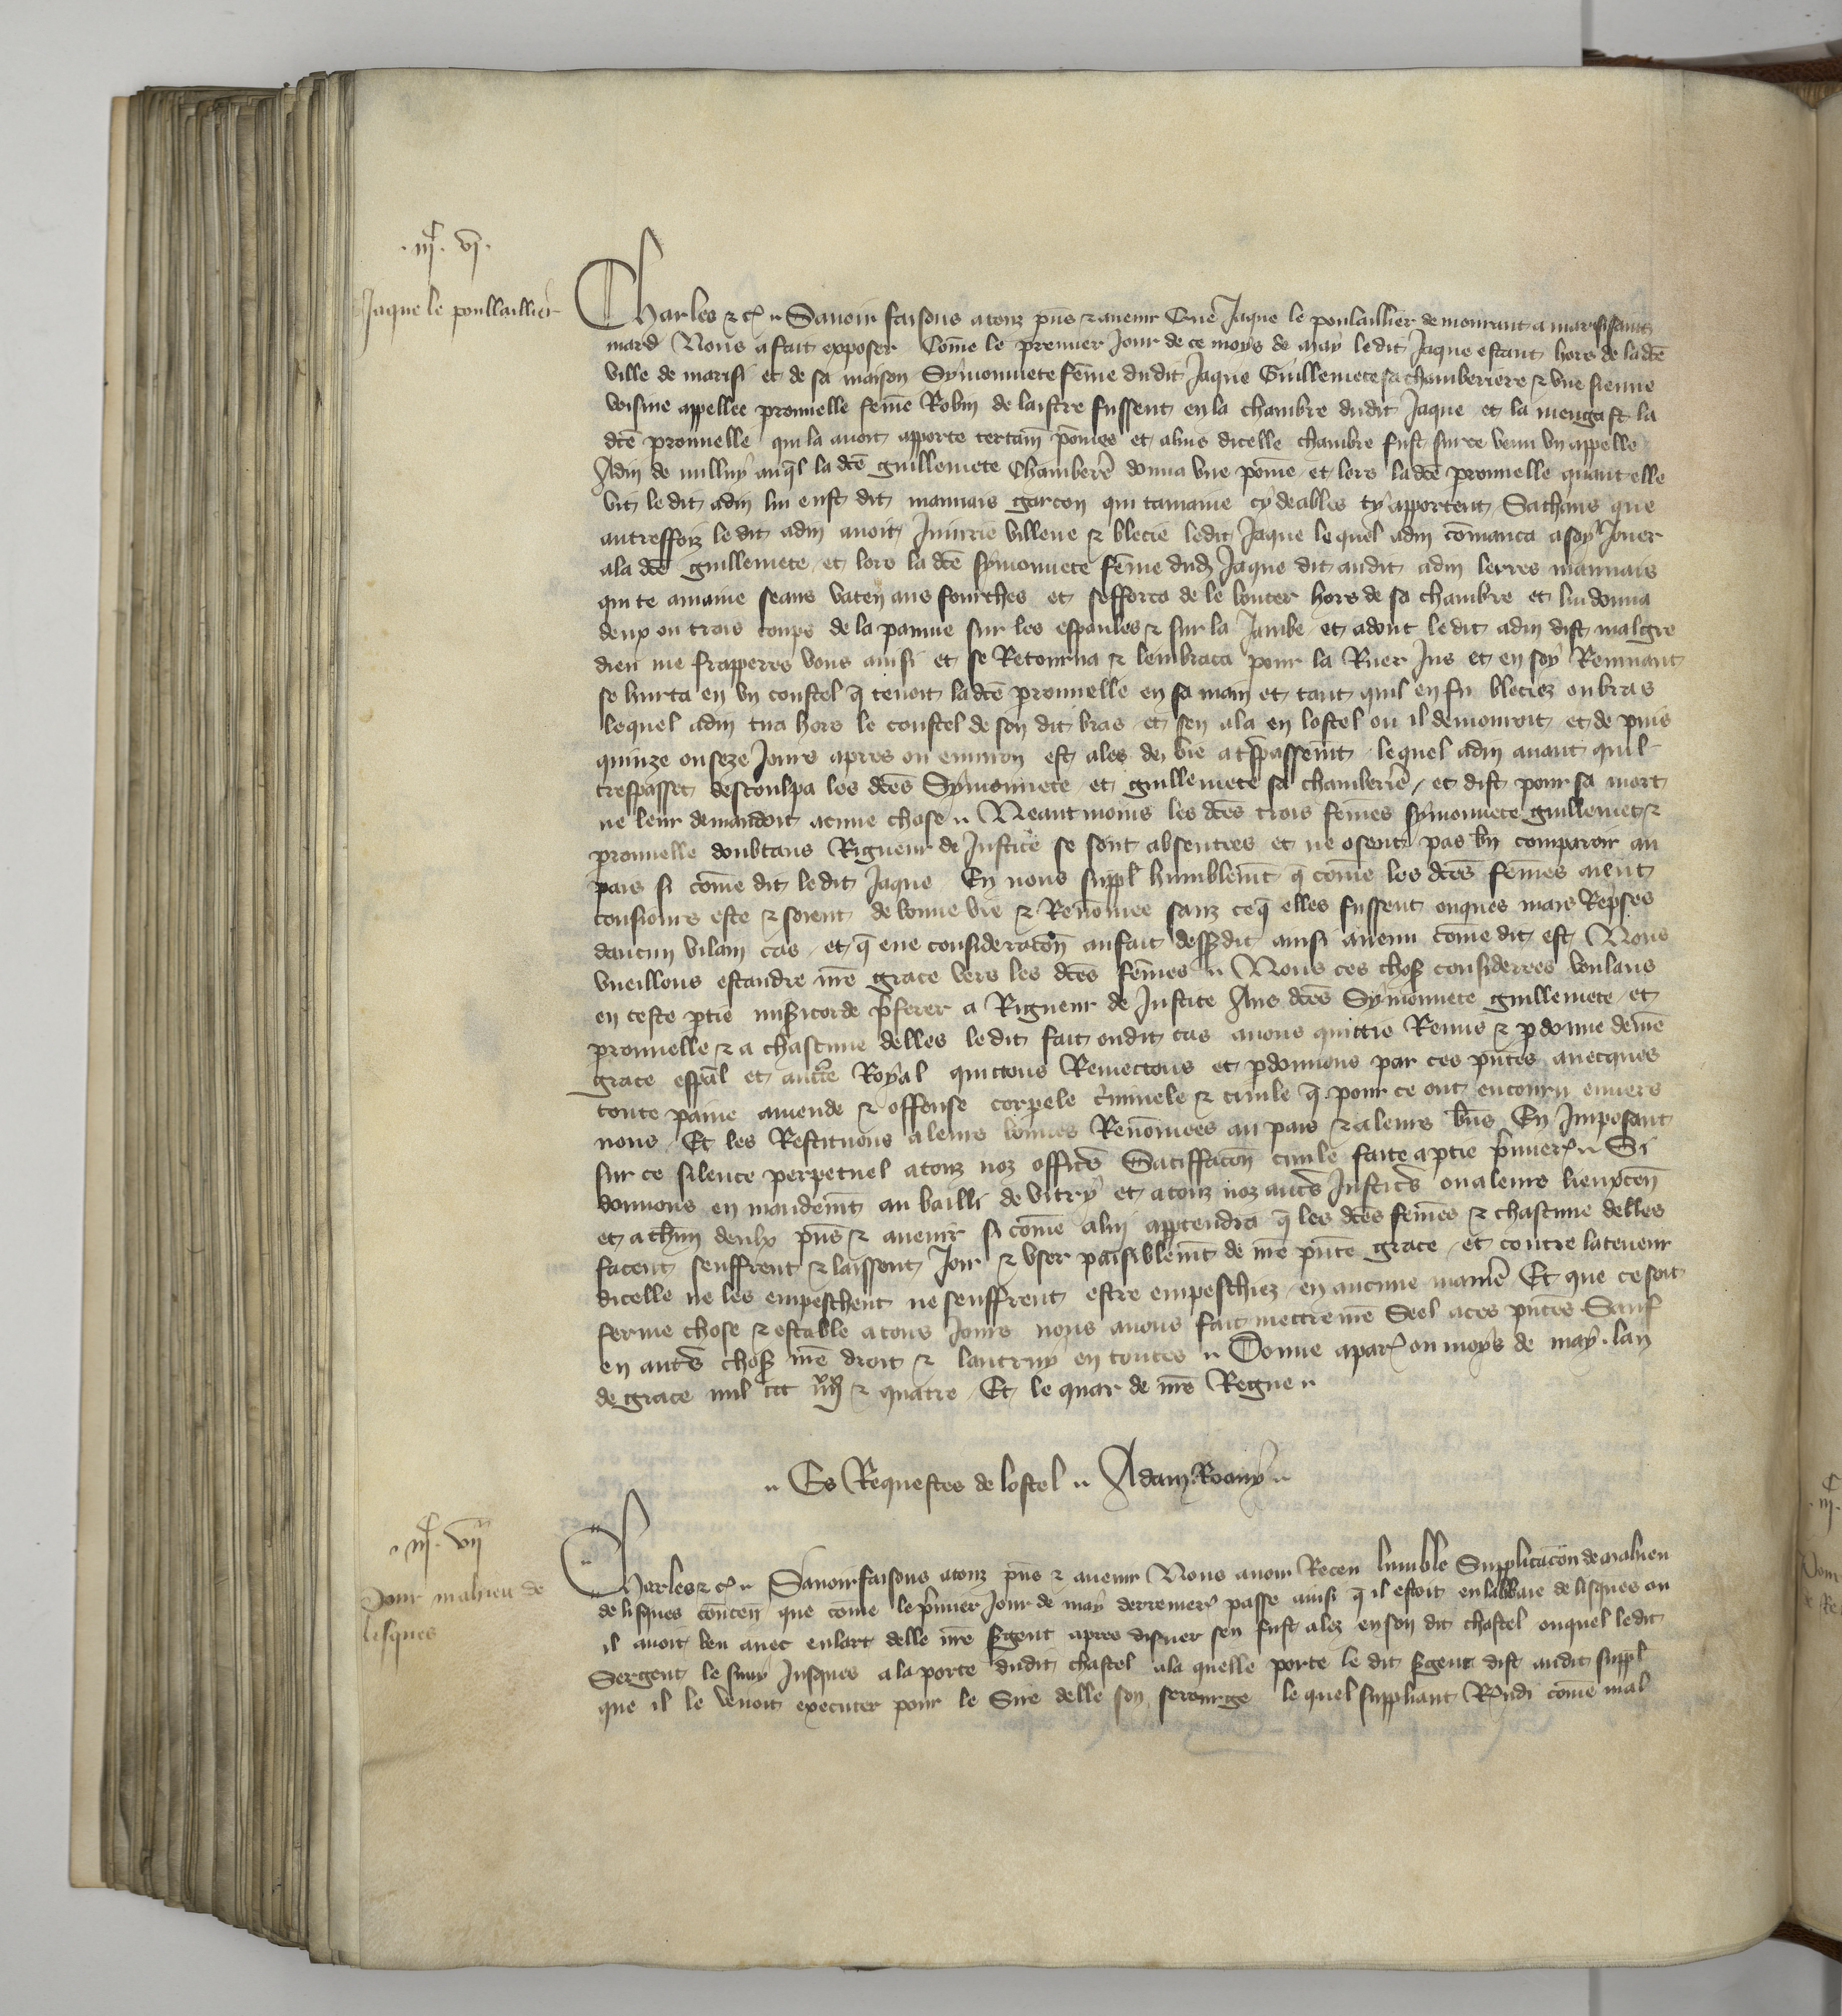 .iijc. vj.
Jaque le poullaillier
Charles etc. Savoir faisons a touz pñs et avenir Que Jaque le poulaillier demourant a marisisainct
mard Nous a fait exposer Cõme le premier Jour de ce moys de may ledit Jaque estant hors de ladcẽ
ville de marisi et de sa maison Symonnete fẽme dudit Jaque Guillemete sa chamberiere et une sienne
voisine appellee pronnelle femẽ Robin de laistre fussent en la chambre dudit Jaque et la mengast la
dcẽ pronnelle qui la avoit apporte certain põmes et aluis dicelle chambre fust survenu un appelle
Adin de nulluy auql̃ la dcẽ guillemete Chamberẽ donna une põme et lors ladcẽ pronnelle quant elle
vit ledit adin lui eust dit mauvais garcon qui tamaine cy deables ty apportent Sathans que
autreffoiz ledit adin avoit Jniurie villene et blecie ledit Jaque lequel adin cõmanca a soy Jouer
ala dcẽ guillemete et lors la dcẽ symonnete fẽme dud Jaque dit audit adin lerres mauvais
qui te amaine seans vaten aus fourches et sefforca de le bouter hors de sa chambre et lui donna
deux ou trois coups de la paume sur les espaules et sur la Jambe et adont ledit adin dist malgre
dieu me frapperes vous ainsi et se Retourna et lembraca pour la Ruer Jus et en soy Remuant
se hurta en un coustel q̃ tenoit ladcẽ pronnelle en sa main et tant quil en fu bleciez ou bras
lequel adin tira hors le coustel de son dit bras et sen ala en lostel ou il demouroit et de puis
quinze ou seze Jours apres ou environ est ales de vie a tr̃passemt̃ lequel adin avant quil
trespasset descoulpa les dcẽs Symonnete et guillemete sa chamberẽ et dist pour sa mort
ne leur demandoit acune chose Neantmoins les dcẽs trois femẽs symonnete guillemete et
pronnelle doubtans Rigueur de Justice se sont absentees et ne osent pas bñ comparoir au
pais si cõme dit ledit Jaque En nous suppl̃ humblemt̃ q̃ cõme les dcẽs fẽmes aient
tousiours este et soient de bonne vie et Renõmee sanz ce q̃ elles fussent onques mais Rep̃ses
daucun vilain cas et q̃ eue consideracõn au fait dessusdit ainsi avenu cõme dit est Nous
vueillons estandre nrẽ grace vers les dcẽs fẽmes Nous ces choses considerees voulans
en ceste p̃tie misicorde p̃ferer a Rigueur de Justice Aus dcẽs Symonnete guillemete et
pronnelle et a chascune delles ledit fait oudit cas avons quittie Remis et p̃donne de nrẽ
grace esp̃al et auctẽ Royal quictons Remectons et p̃donnons par ces pñtes avecques
toute paine amende et offense corpele c̃iminele et civile q̃ pour ce ont encouru envers
nous Et les Restituons a leurs bonnes Renõmees au pais et a leurs bñs En Jmposant
sur ce silence perpetuel a touz noz officẽs Satiffacõn civile faite a p̃tie p̃mier Si
donnons en mandemt̃ au bailli de vitry et a touz noz autẽs Justicẽs ou a leurs lieuxteñ
et a chun deulx pñs et avenir si cõme a lui app̃tendra q̃ les dcẽs fẽmes et chascune delles
facent seuffrent et laissent Joir et user paisiblemt̃ de nrẽ pñte grace et contre la teneur
dicelle ne les empeschent ne seuffrent estre empeschiez en aucune manieẽ Et que ce soit
ferme chose et estable a tous Jours nous avons fait mettre nrẽ Seel a ces pñtes Sauf
en autẽs choses nrẽ droit et lautruy en toutes Donne a par ou moys de may lan
de grace mil ccc iiijxx et quatre Et le quar de nrẽ Regne
Es Requestes de lostel Adam Roany
.iijc. vij
Pour mahieu de
lisques
Charles etc. Savoir faisons a touz pñs et avenir Nous avoir Receu lumble Supplicacõn de mahieu
de lisques conteñ que cõme le p̃mier Jour de may derrenier passe ainsi q̃ il estoit en labbaie de lisques ou
il avoit beu avec enlart delle nrẽ s̃gent apres disner sen fust alez en son dit chastel ouquel ledit
Sergent le suuy Jusques a la porte dudit chastel a la quelle porte le dit s̃gent dist audit suppl̃
que il le venoit executer pour le Sire delle son serourge le quel suppliant Rñdi cõme mal